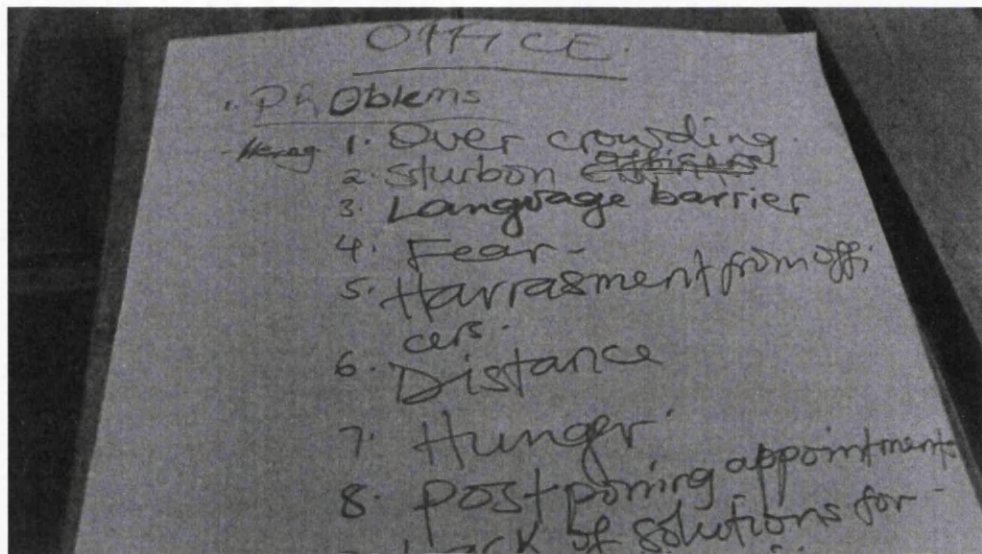 OFFICE.
. PROblems
1. Over crowding.
2. Sturbon officers
3. Language barrier
4. Fear -
5. Harrasment from offi
cers.
6. Distance
7. Hunger.
8. Postponing appointments
Lack of solutions for